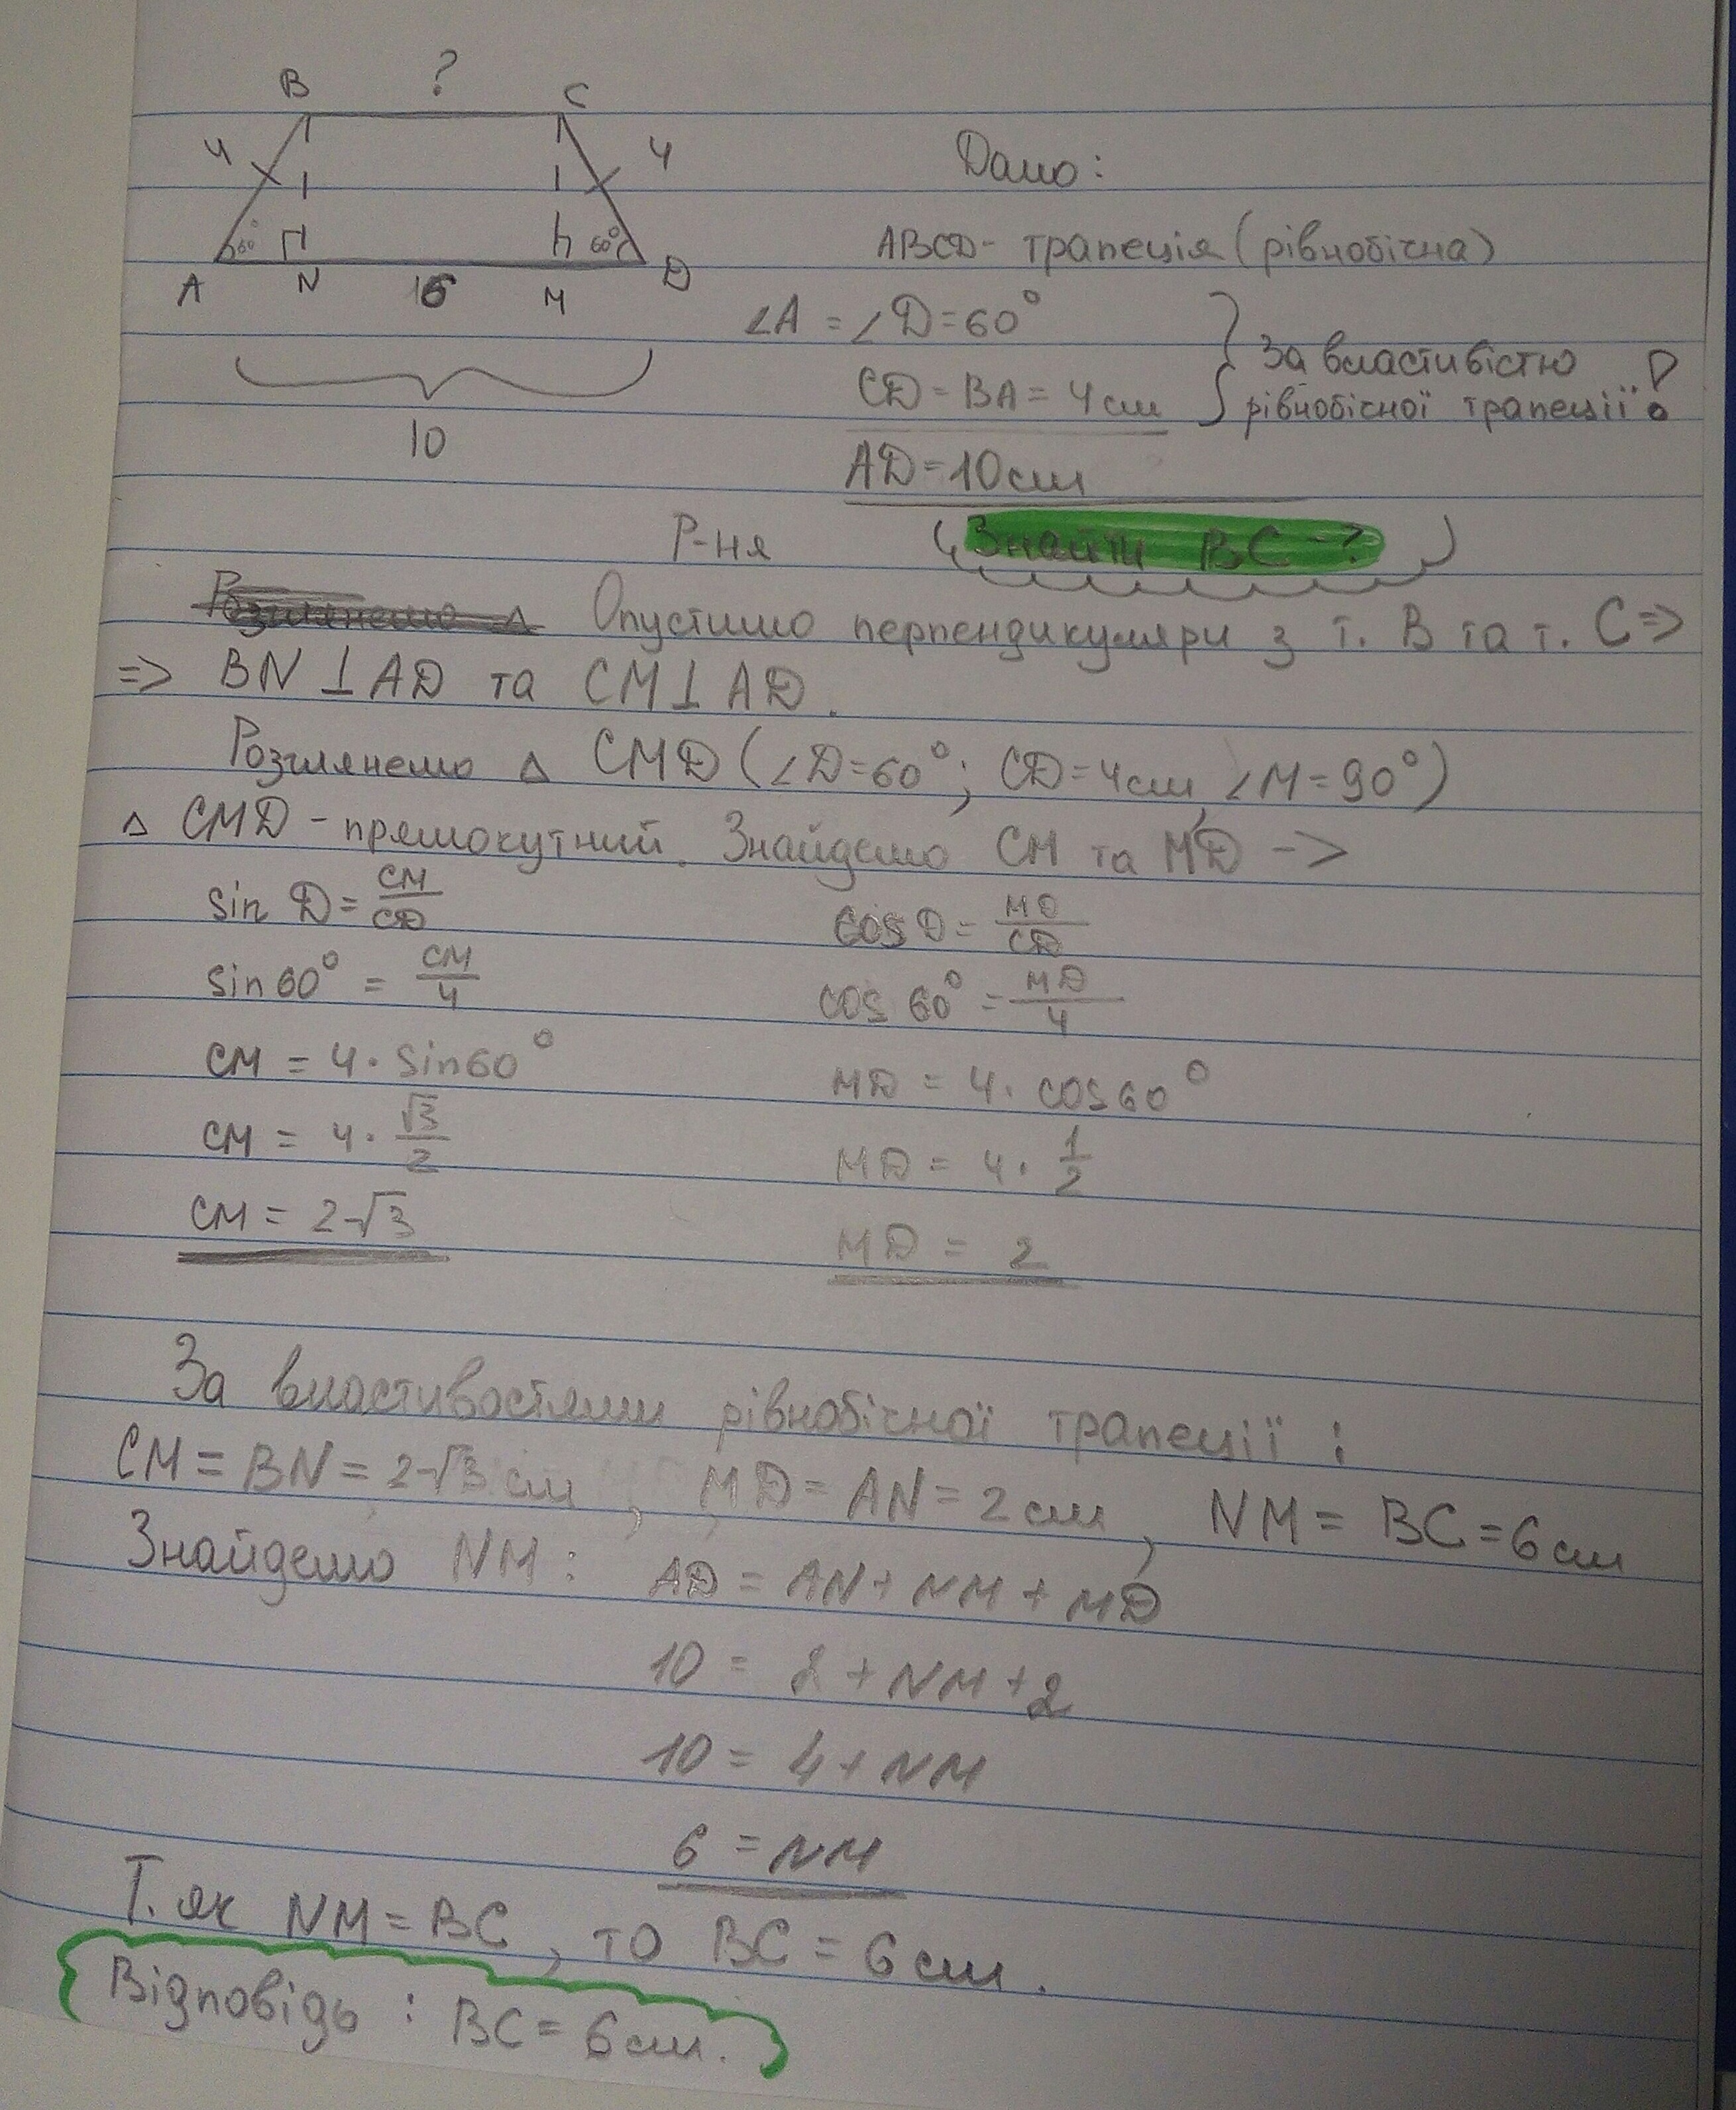 B ? C
4 4
60° 60°
A N 6 M D
10
Дано:
ABCD- трапеція (рівнобічна)
∠A = ∠D=60°
CD=BA=4см
За властивістю
рівнобічної трапеції!
AD=10см
Р-ня Знайти BC-?
Розглянемо Δ Опустимо перпендикуляри з т. B та т. C =>
=> BN⊥AD та CM⊥AD.
Розглянемо Δ CMD (∠D=60°; CD=4см, ∠M=90°)
Δ CMD-прямокутний. Знайдемо CM та MD ->
sin D = CM/CD cos D = MD/CD
sin 60° = CM/4 cos 60° = MD/4
CM = 4·sin60° MD = 4·cos60°
CM = 4·√3/2 MD = 4·1/2
CM = 2√3 MD = 2
За властивостями рівнобічної трапеції:
CM=BN=2√3 см, MD=AN=2см, NM=BC=6см
Знайдемо NM: AD=AN+NM+MD
10 = 2+NM+2
10 = 4+NM
6 = NM
Т.як NM=BC, то BC=6см.
Відповідь: BC=6см.